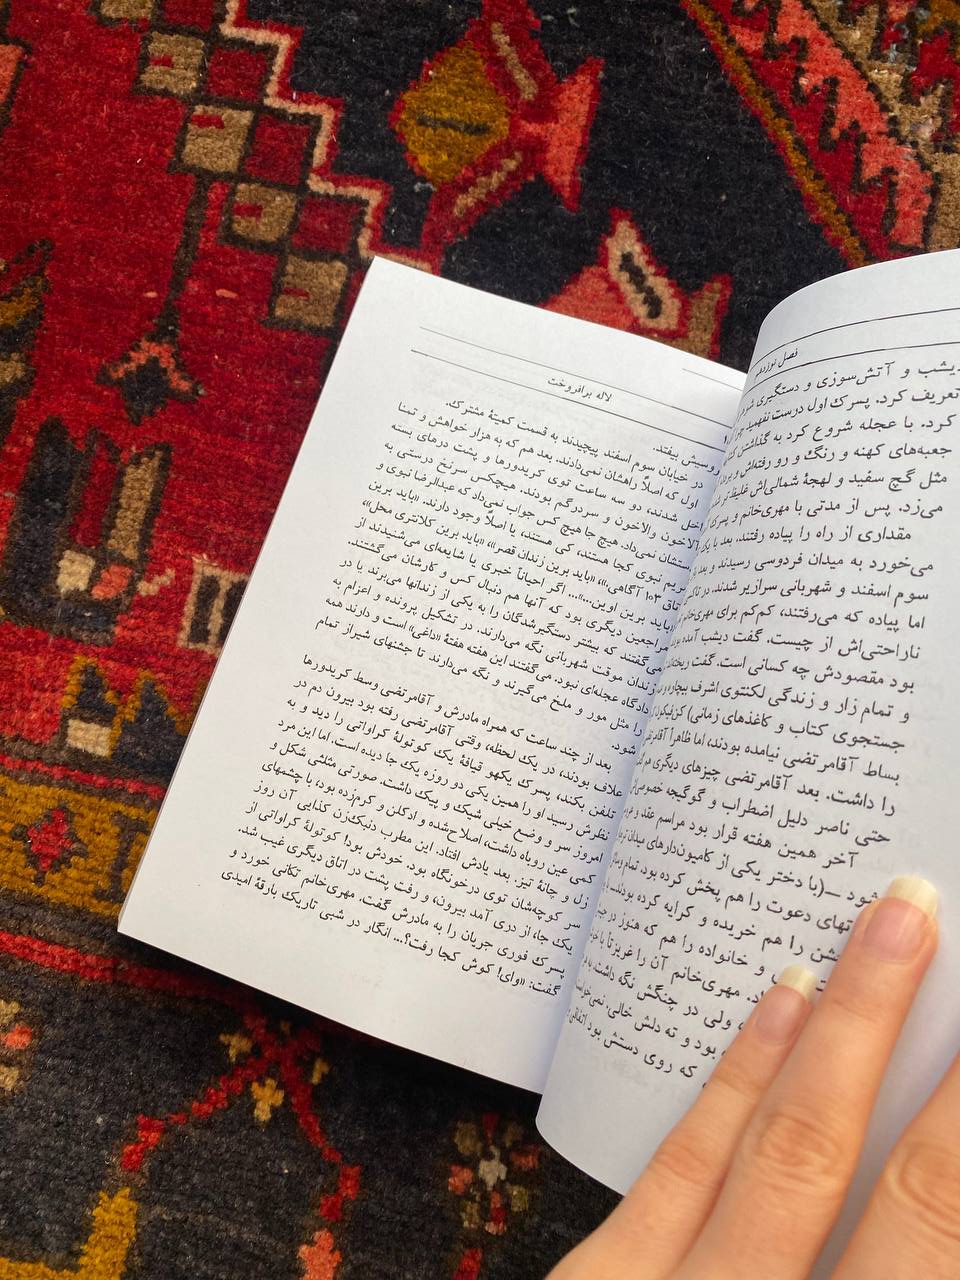 فصل نوزدهم
دیشب و آتش‌سوزی و دستگیری
تعریف کرد. پسرک اول درست نفهمید.
کرد. با عجله شروع کرد به گذاشتن
جعبه‌های کهنه و رنگ و رو رفته‌اش و
مثل گچ سفید و لهجهٔ شمالی‌اش غلیظ‌تر
می‌زد. پس از مدتی با مهری‌خانم و پسرک
مقداری از راه را پیاده رفتند. بعد با یک
می‌خورد به میدان فردوسی رسیدند و بعد
سوم اسفند و شهربانی سرازیر شدند. در
اما پیاده که می‌رفتند، کم‌کم برای مهری‌خانم
ناراحتی‌اش از چیست. گفت دیشب آمده
بود مقصودش چه کسانی است. گفت
و تمام زار و زندگی لکنتوی اشرف بیچاره
جستجوی کتاب و کاغذهای زمانی)
بساط آقامرتضی نیامده بودند، اما ظاهراً
را داشت. بعد آقامرتضی چیزهای دیگری هم
حتی ناصر دلیل اضطراب و گوگیجه
آخر همین هفته قرار بود مراسم عقد و
شود —(با دختر یکی از کامیون‌دارهای میدان
دعوت را هم پخش کرده بود، تمام
را هم خریده و کرایه کرده بودند
و خانواده را هم که هنوز در
مهری‌خانم آن را عزیزتا
ولی در چنگش نگه داشت،
بود و ته دلش خالی. نمی‌خواست
که روی دستش بود
لاله برافروخت
بیفتد.
در خیابان سوم اسفند پیچیدند به قسمت کمیتهٔ مشترک.
اول که اصلاً راهشان نمی‌دادند. بعد هم که به هزار خواهش و تمنا
شدند، دو سه ساعت توی کریدورها و پشت درهای بسته
آلاخون والاخون و سردرگم بودند. هیچکس سرنخ درستی به
نمی‌داد. هیچ جا هیچ کس جواب نمی‌داد که عبدالرضا نبوی و
مریم نبوی کجا هستند، کی هستند، یا اصلاً وجود دارند. «باید برین
اتاق ۱۰۳ آگاهی.»، «باید برین زندان قصر»، «باید برین کلانتری محل»،
«باید برین اوین...»... اگر احیاناً خبری یا شایعه‌ای می‌شنیدند از
مراجعین دیگری بود که آنها هم دنبال کس و کارشان می‌گشتند.
می‌گفتند که بیشتر دستگیرشدگان را به یکی از زندانها می‌برند یا در
زندان موقت شهربانی نگه می‌دارند. در تشکیل پرونده و اعزام به
دادگاه عجله‌ای نبود. می‌گفتند این هفته هفتهٔ «داغی» است و دارند همه
را مثل مور و ملخ می‌گیرند و نگه می‌دارند تا جشنهای شیراز تمام
شود.
بعد از چند ساعت که همراه مادرش و آقامرتضی وسط کریدورها
علاف بودند، در یک لحظه، وقتی آقامرتضی رفته بود بیرون دم در
تلفن بکند، پسرک یکهو قیافهٔ یک کوتولهٔ کراواتی را دید و به
نظرش رسید او را همین یکی‌دو روزه یک جا دیده است. اما این مرد
امروز سر و وضع خیلی شیک و پیک داشت. صورتی مثلثی شکل و
کمی عین روباه داشت، اصلاح‌شده و ادکلن و کرم‌زده بود، با چشمهای
زل و چانهٔ تیز. بعد یادش افتاد. این مطرب دنبک‌زن کذایی آن روز
سر کوچه‌شان توی درخونگاه بود. خودش بود! کوتولهٔ کراواتی از
یک جاء از دری آمد بیرون، و رفت پشت در اتاق دیگری غیب شد.
پسرک فوری جریان را به مادرش گفت. مهری‌خانم تکانی خورد و
گفت: «وای! کوش کجا رفت؟»... انگار در شبی تاریک بارقهٔ امیدی